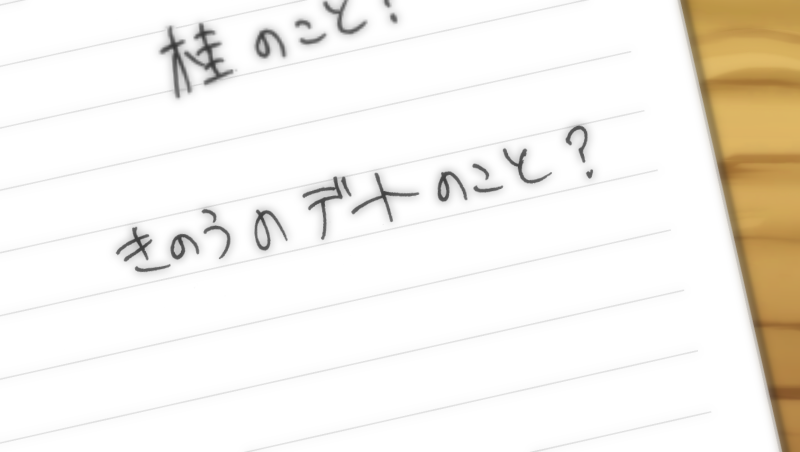 桂のこと?
きのうのデートのこと?